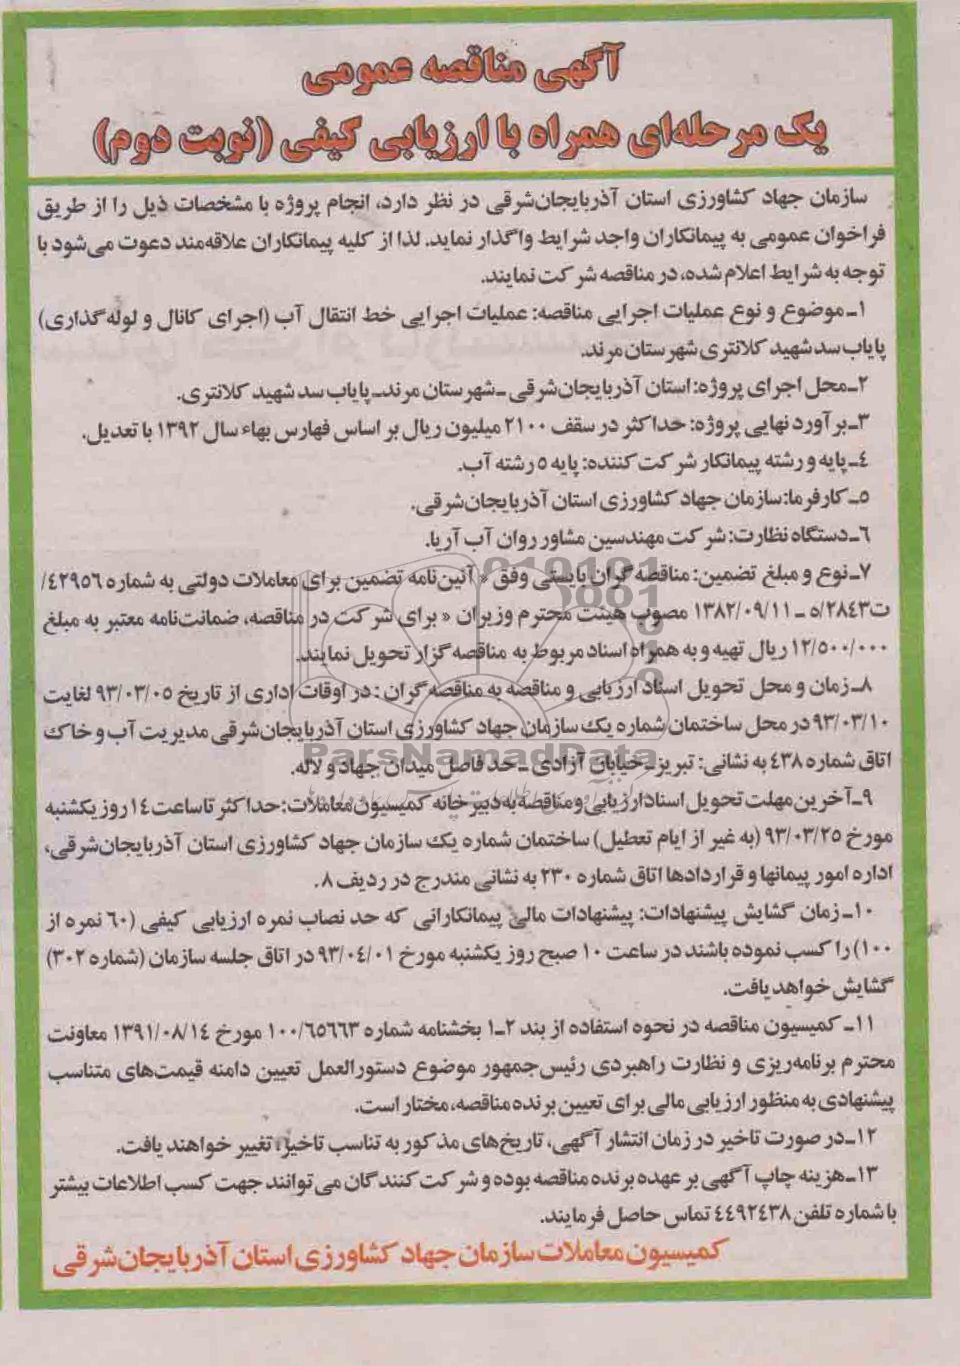 آگهی مناقصه عمومی
یک مرحله‌ای همراه با ارزیابی کیفی (نوبت دوم)
سازمان جهاد کشاورزی استان آذربایجان‌شرقی در نظر دارد، انجام پروژه با مشخصات ذیل را از طریق
فراخوان عمومی به پیمانکاران واجد شرایط واگذار نماید. لذا از کلیه پیمانکاران علاقه‌مند دعوت می‌شود با
توجه به شرایط اعلام شده، در مناقصه شرکت نمایند.
۱ـ موضوع و نوع عملیات اجرایی مناقصه: عملیات اجرایی خط انتقال آب (اجرای کانال و لوله‌گذاری)
پایاب سد شهید کلانتری شهرستان مرند.
۲ـ محل اجرای پروژه: استان آذربایجان‌شرقی ـ شهرستان مرند ـ پایاب سد شهید کلانتری.
۳ـ برآورد نهایی پروژه: حداکثر در سقف ۲۱۰۰ میلیون ریال بر اساس فهارس بهاء سال ۱۳۹۲ با تعدیل.
۴ـ پایه و رشته پیمانکار شرکت کننده: پایه ۵ رشته آب.
۵ـ کارفرما: سازمان جهاد کشاورزی استان آذربایجان‌شرقی.
۶ـ دستگاه نظارت: شرکت مهندسین مشاور روان آب آریا.
۷ـ نوع و مبلغ تضمین: مناقصه‌گران بایستی وفق « آئین‌نامه تضمین برای معاملات دولتی به شماره ۴۲۹۵۶/
ت۲۸۴۳/ه ـ ۱۳۸۲/۰۹/۱۱ مصوب هیئت محترم وزیران » برای شرکت در مناقصه، ضمانت‌نامه معتبر به مبلغ
۱۲/۵۰۰/۰۰۰ ریال تهیه و به همراه اسناد مربوط به مناقصه‌گزار تحویل نمایند.
۸ـ زمان و محل تحویل اسناد ارزیابی و مناقصه به مناقصه‌گران : در اوقات اداری از تاریخ ۹۳/۰۳/۰۵ لغایت
۹۳/۰۳/۱۰ در محل ساختمان شماره یک سازمان جهاد کشاورزی استان آذربایجان‌شرقی مدیریت آب و خاک
اتاق شماره ۴۳۸ به نشانی: تبریز ـ خیابان آزادی ـ حد فاصل میدان جهاد و لاله.
ParsNamadData
۹ـ آخرین مهلت تحویل اسناد ارزیابی و مناقصه به دبیرخانه کمیسیون معاملات: حداکثر تا ساعت ۱۴ روز یکشنبه
مورخ ۹۳/۰۳/۲۵ (به غیر از ایام تعطیل) ساختمان شماره یک سازمان جهاد کشاورزی استان آذربایجان‌شرقی،
اداره امور پیمانها و قراردادها اتاق شماره ۲۳۰ به نشانی مندرج در ردیف ۸.
۱۰ـ زمان گشایش پیشنهادات: پیشنهادات مالی پیمانکارانی که حد نصاب نمره ارزیابی کیفی (۶۰ نمره از
۱۰۰) را کسب نموده باشند در ساعت ۱۰ صبح روز یکشنبه مورخ ۹۳/۰۴/۰۱ در اتاق جلسه سازمان (شماره ۳۰۲)
گشایش خواهد یافت.
۱۱ـ کمیسیون مناقصه در نحوه استفاده از بند ۲ـ۱ بخشنامه شماره ۱۰۰/۶۵۶۶۳ مورخ ۱۳۹۱/۰۸/۱۴ معاونت
محترم برنامه‌ریزی و نظارت راهبردی رئیس‌جمهور موضوع دستورالعمل تعیین دامنه قیمت‌های متناسب
پیشنهادی به منظور ارزیابی مالی برای تعیین برنده مناقصه، مختار است.
۱۲ـ در صورت تاخیر در زمان انتشار آگهی، تاریخ‌های مذکور به تناسب تاخیر، تغییر خواهند یافت.
۱۳ـ هزینه چاپ آگهی بر عهده برنده مناقصه بوده و شرکت کنندگان می‌توانند جهت کسب اطلاعات بیشتر
با شماره تلفن ۴۴۹۲۴۳۸ تماس حاصل فرمایند.
کمیسیون معاملات سازمان جهاد کشاورزی استان آذربایجان‌شرقی